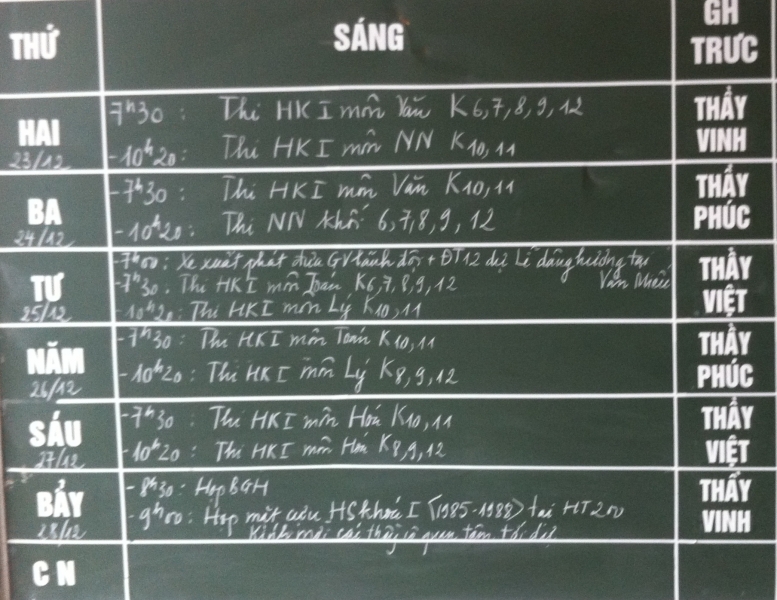 THỨ SÁNG GH TRỰC
HAI 23/12 THẦY VINH
7h30 : Thi HK I môn Văn K 6,7,8,9,12
-10h20 : Thi HK I môn NN K10,11
BA 24/12 THẦY PHÚC
-7h30 : Thi HK I môn Văn K10,11
-10h20 : Thi NN khối 6,7,8,9,12
TƯ 25/12 THẦY VIỆT
-7h00 : Xe xuất phát đưa GV lãnh đội + ĐT12 dự Lễ dâng hương tại Văn Miếu
-7h30 : Thi HK I môn Toán K6,7,8,9,12
-10h20 : Thi HK I môn Lý K10,11
NĂM 26/12 THẦY PHÚC
-7h30 : Thi HK I môn Toán K10,11
-10h20 : Thi HK I môn Lý K8,9,12
SÁU 27/12 THẦY VIỆT
-7h30 : Thi HK I môn Hoá K10,11
-10h20 : Thi HK I môn Hoá K8,9,12
BẢY 28/12 THẦY VINH
- 8h30 : Họp BGH
-9h00 : Họp mặt cựu HS khoá I (1985-1988) tại HT 200
Kính mời các thầy cô quan tâm tới dự
C N